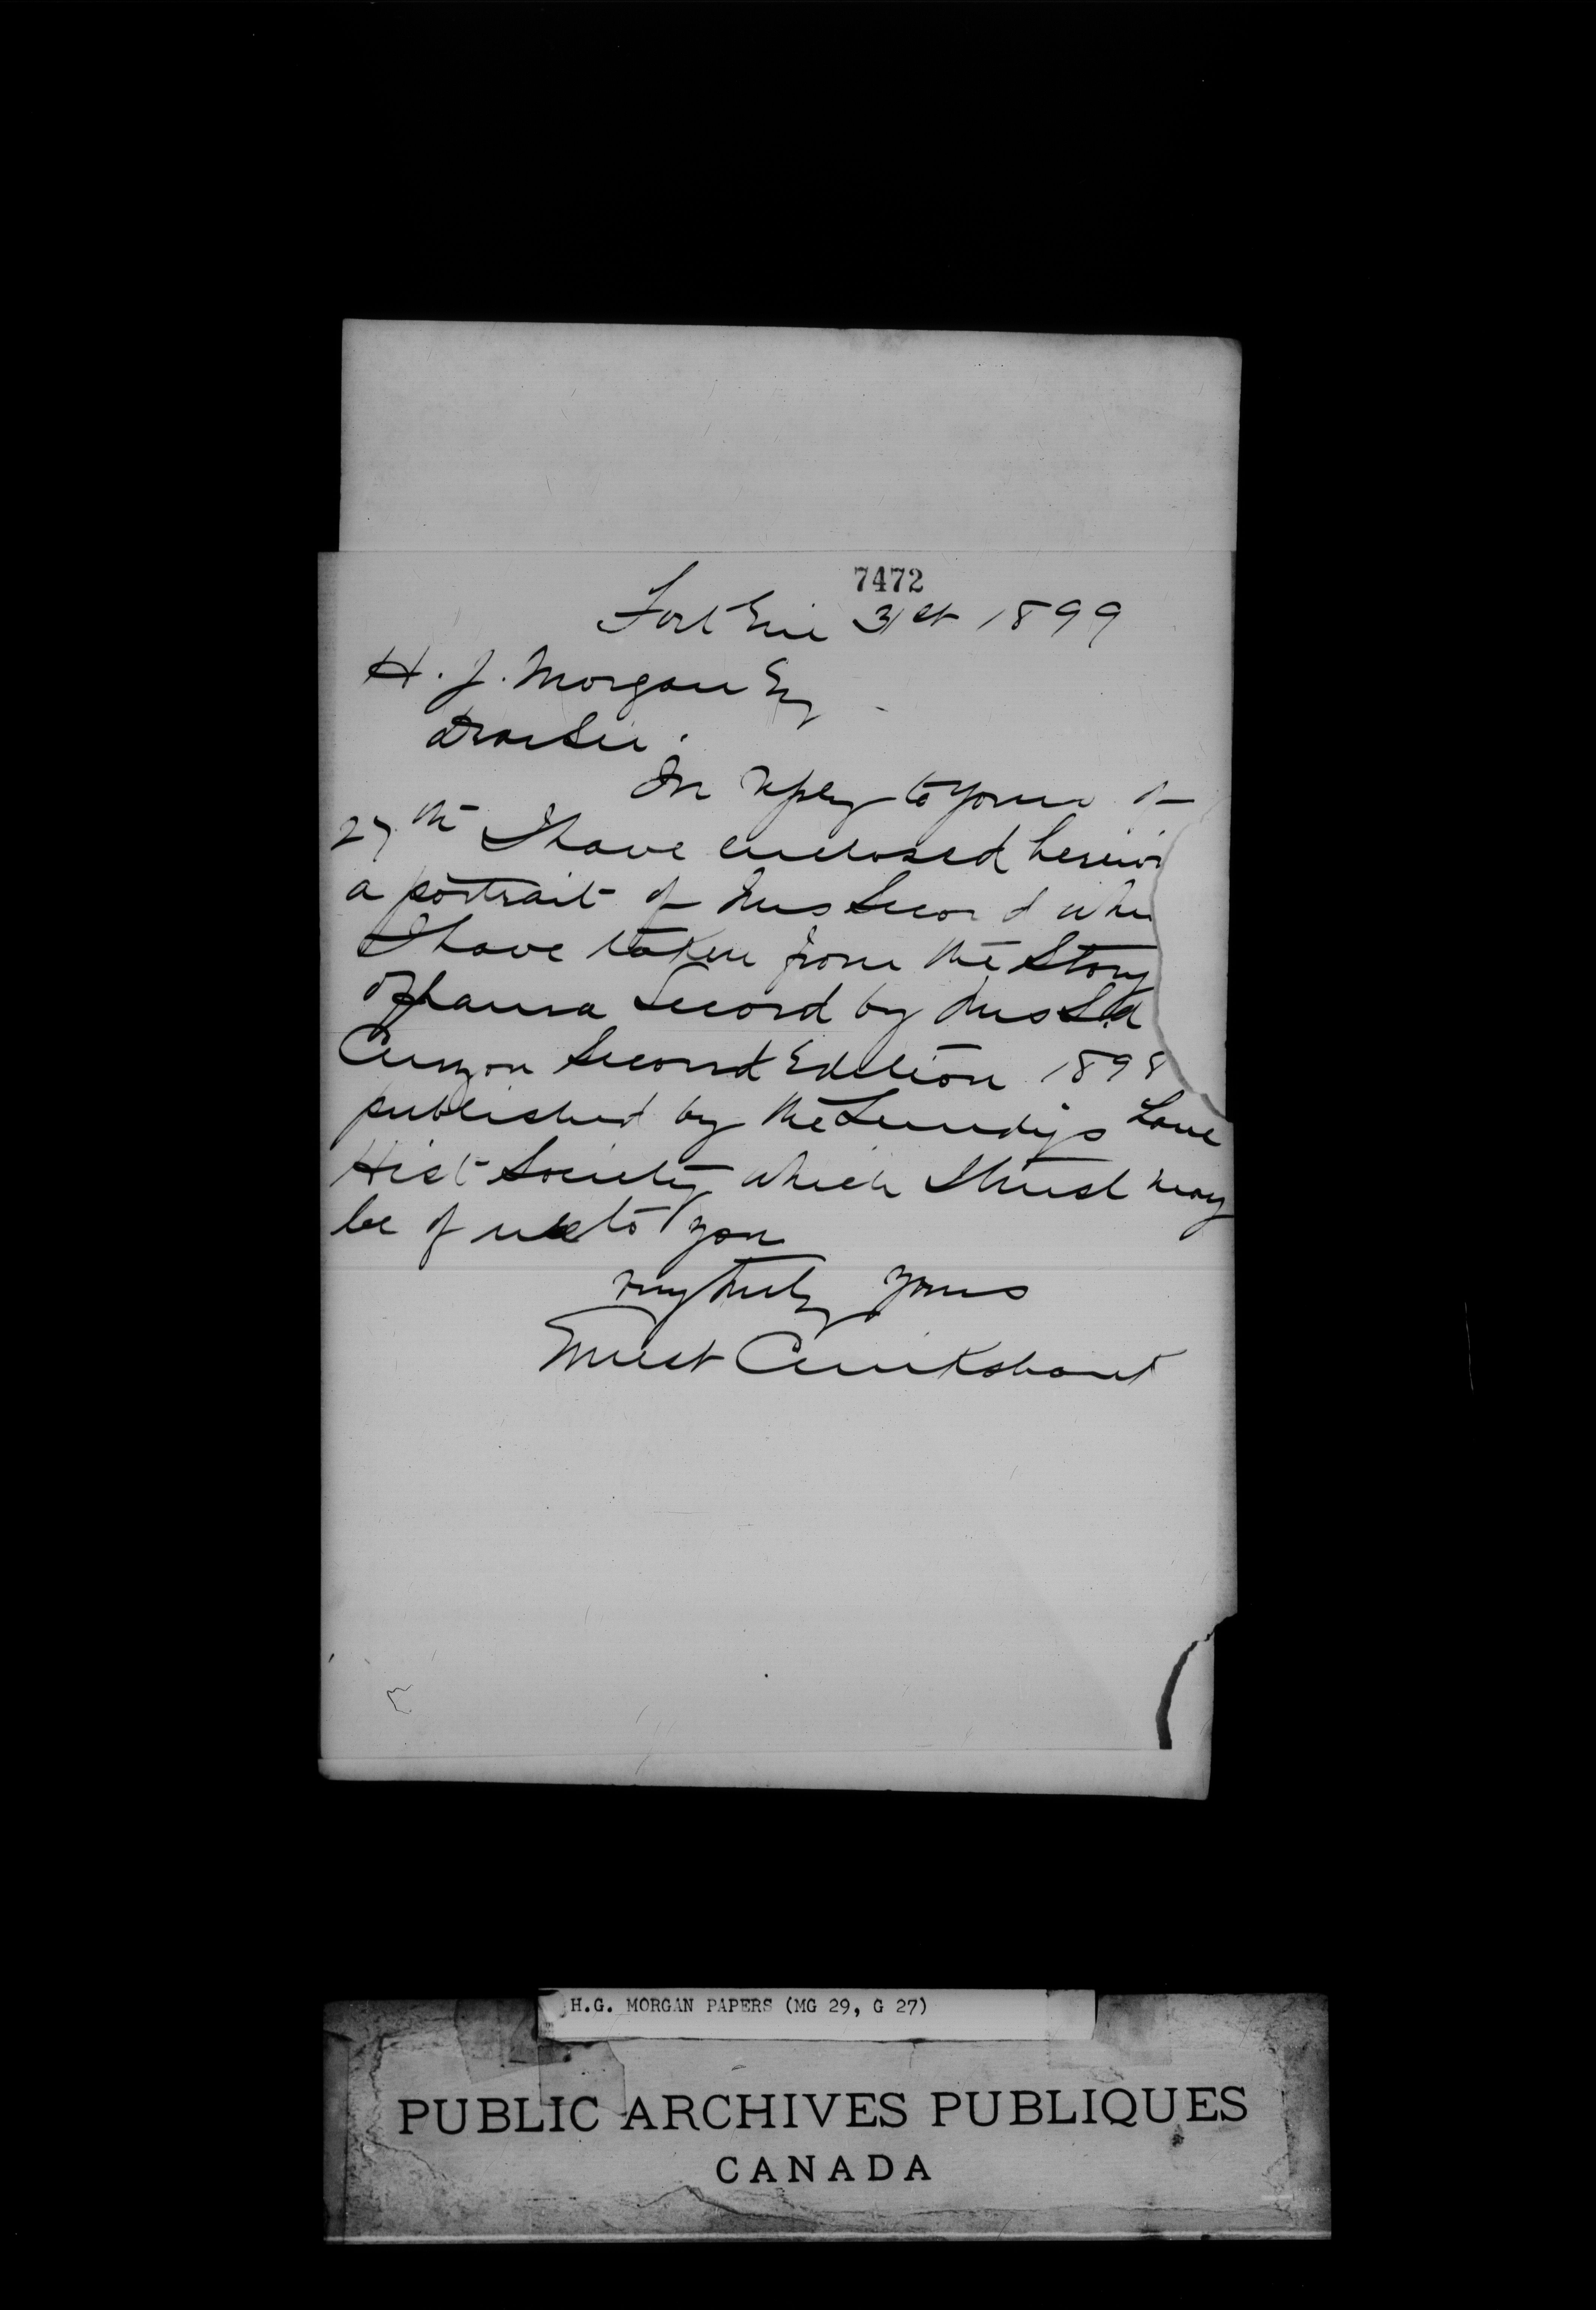 7472
Fort Erie 31st 1899
H. J. Morgan Esq
Dear Sir.
In reply to yours of
27th I have enclosed herein
a portrait of Mrs Secord whi
I have taken from the Story
of Laura Secord by Mrs S.A
Curzon Second Edition 1898
published by the Lundys Lane
Hist Society which I trust may
be of use to you
Very truly yours
Ernest Cruikshank
H.G. MORGAN PAPERS (MG 29, G 27)
PUBLIC ARCHIVES PUBLIQUES
CANADA